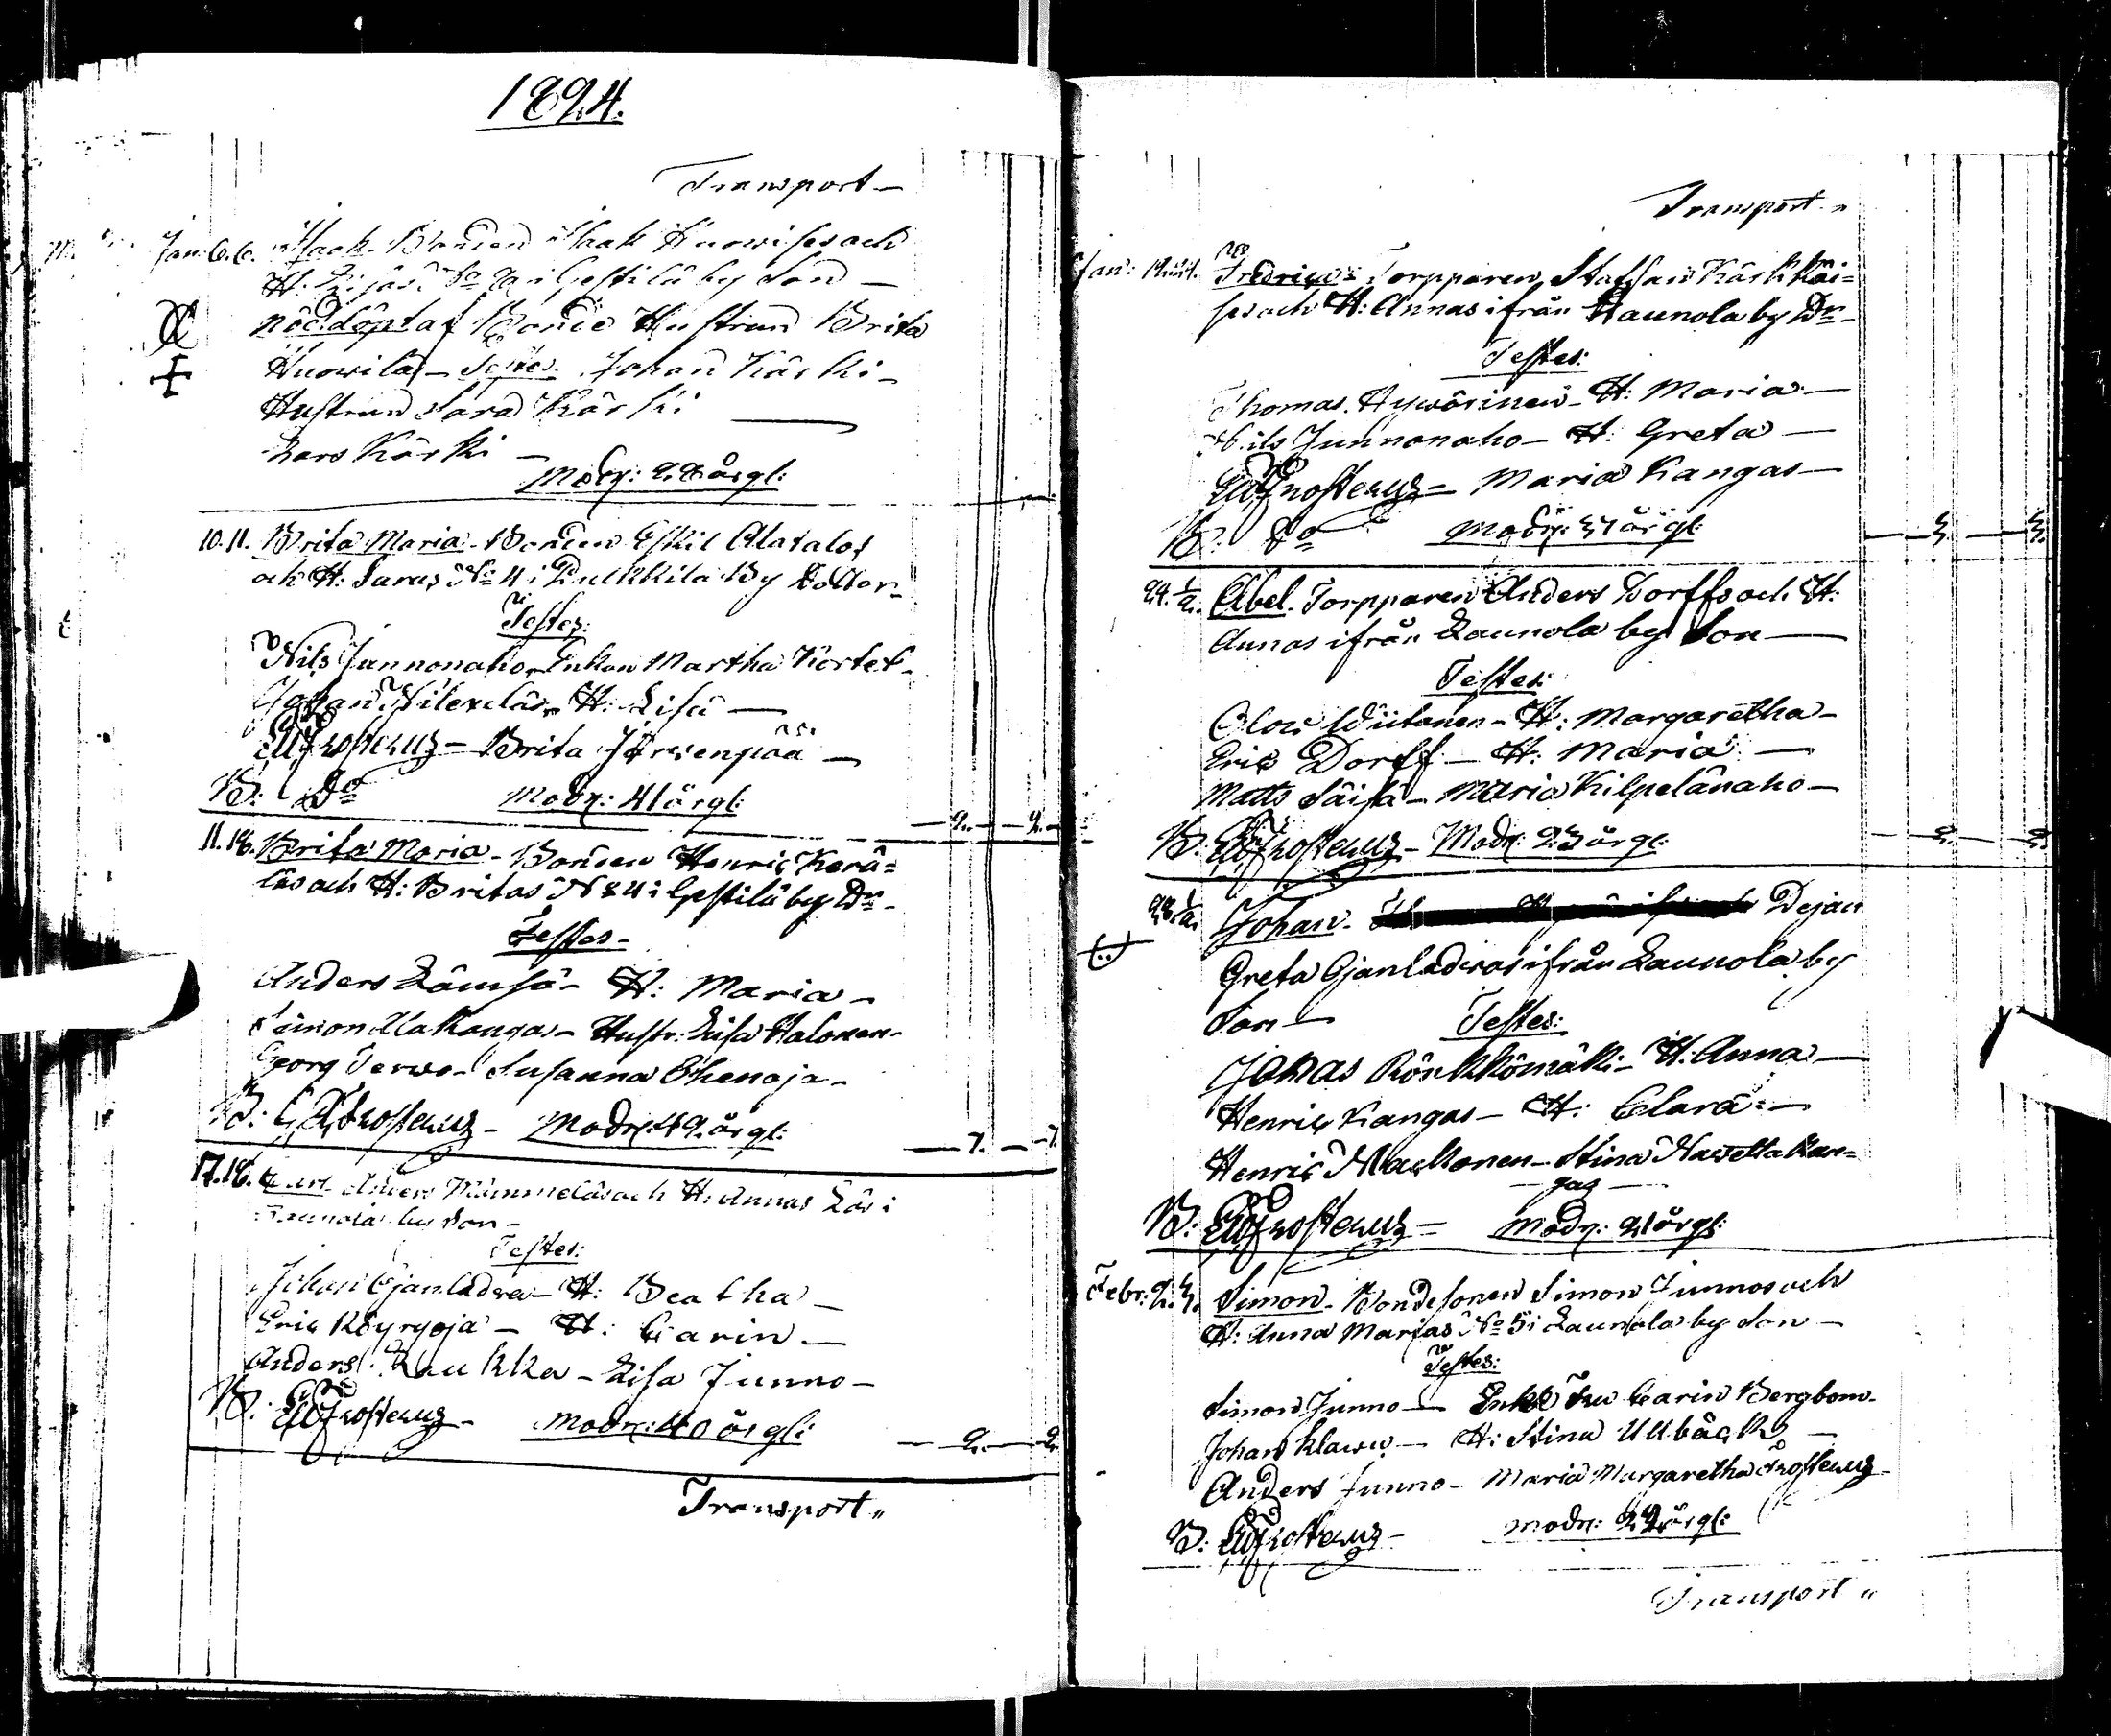 1824.
Transport
Jan: 6. 6. Isaak. Bonden Isaak Huovilas och
H: Lisas No 2 i Gestilä by Son
nöddöpt af Bonde Hustrun Brita
Huovila - Testes. Johan Kärki
Hustrun Sara Kärki
Lars Kärki
Modr: 28 år gl:
10. 11. Brita Maria - Bonden Eskil Alatalos
och H: Saras No 4 i Pulkkila By Dotter
Testes:
Nils Junnonaho - Enkan Martha Kortet
Johan - H: Lisa
Brita Järvenpää
B: Do Modr: 41 år gl:
2. 2.
11. 18. Brita Maria - Bonden Henric Kerä=
läs och H: Britas No 4 i Gestilä by Dr
Testes
Anders Lämsä - H: Maria
Simon Ala Kangas - Hustr: Lisa Halonen
Georg Terwo - Susanna Ohenoja
B: Modr: 42 år gl:
7. 7.
17. 18. Anders H: Annas Lös i
Launola by Son
Testes:
Johan Ojanladwa - H: Beatha
Eric Köyryoja - H: Carin
Anders Laukka - Lisa Junno
B: Modr: 40 år gl:
2. 2.
Transport
Transport
Jan: Fredric - Torpparen Staffan Kärkkäi=
ses och H: Annas ifrån Launola by Dr
Testes:
Thomas Hywärinen - H: Maria
Nils Junnonaho - H: Greta
Maria Kangas
B: Do Modr: 37 år gl:
3. 3.
24. 1/2. Abel. Torpparen Anders Dorffs och H:
Annas ifrån Launola by Son
Testes:
Olov Wiitanen - H: Margaretha
Eric Dorff - H: Maria
Matts Säisä - Maria Kilpelänaho
B: Modr: 23 år gl:
2. 2.
28. 1/2. Johan. Dejan
Greta Ojanladwas ifrån Launola by
Son
Testes:
Jonas Rönkkömäki - H: Anna
Henric Kangas - H: Clara
Henric - Stina Navettakan=
gas
B: Modr: 21 år gl:
Febr: 2. 3. Simon. Bondesonen Simon Junnos och
H: Anna Marias No 5 i Launola by Son
Testes:
Simon Junno - Enke Fru Carin Bergbom
Johan Klawu - H: Stina Ullbäck
Anders Junno - Maria Margaretha Frosterus
B: Modr: 22 år gl:
Transport